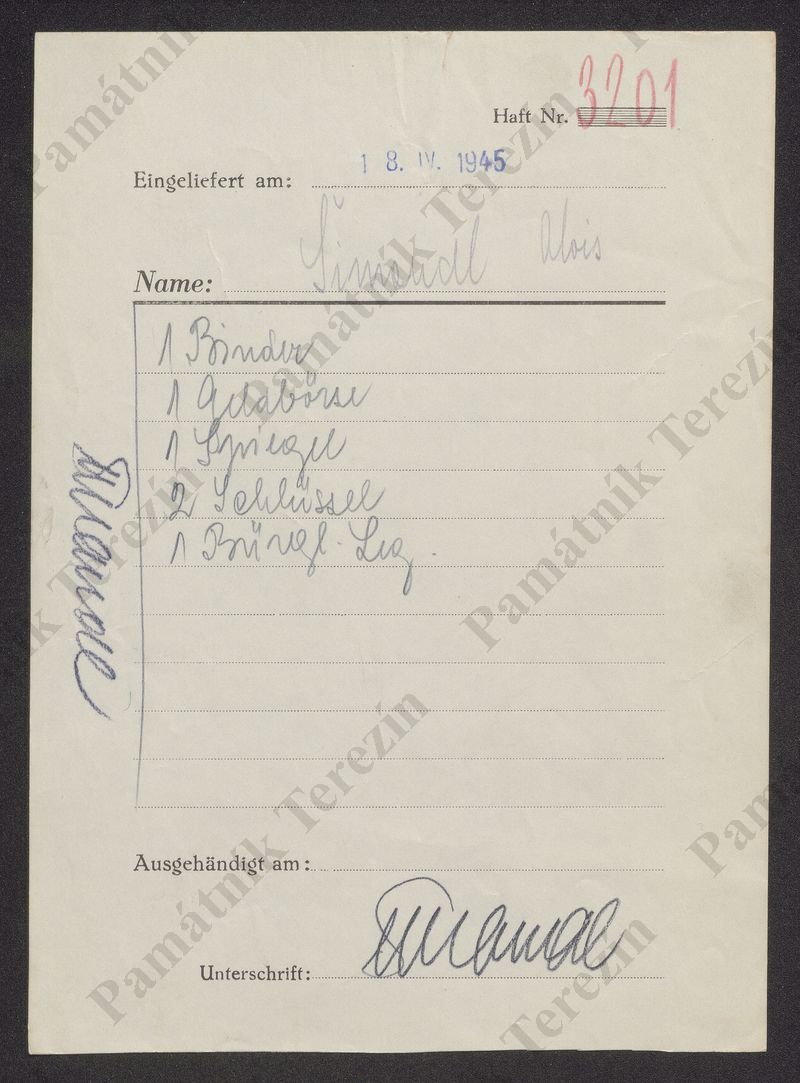 Haft Nr. 3201
Eingeliefert am: 18. IV. 1945
Name: Šimandl Alois
1 Binder
1 Geldbörse
1 Spiegel
2 Schlüssel
1 Bürgl. Leg.
Ausgehändigt am:
Unterschrift:
Památník Terezín